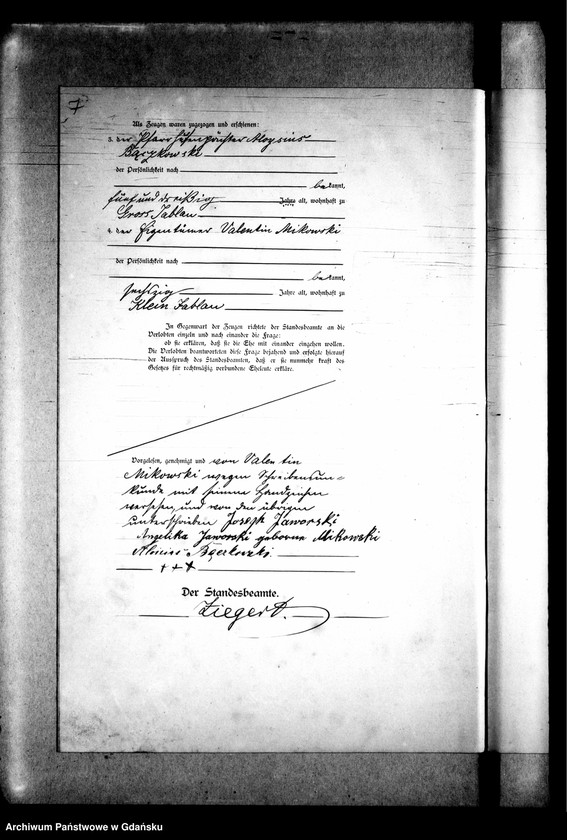 7
Als Zeugen waren zugezogen und erschienen:
3. der Pfarrhufenpächter Aloysius
Bączkowski
der Persönlichkeit nach
bekannt,
fünfunddreißig Jahre alt, wohnhaft zu
Gross Jablau
4. der Eigentümer Valentin Mikowski
der Persönlichkeit nach
bekannt,
sechszig Jahre alt, wohnhaft zu
Klein Jablau
In Gegenwart der Zeugen richtete der Standesbeamte an die
Verlobten einzeln und nach einander die Frage:
ob sie erklären, daß sie die Ehe mit einander eingehen wollen.
Die Verlobten beantworteten diese Frage bejahend und erfolgte hierauf
der Ausspruch des Standesbeamten, daß er sie nunmehr kraft des
Gesetzes für rechtmäßig verbundene Eheleute erkläre.
Vorgelesen, genehmigt und von Valentin
Mikowski wegen Schreibensun-
kunde mit seinem Handzeichen
versehen und von den übrigen
unterschrieben Joseph Jaworski
Angelika Jaworski geborene Mikowski
+++
Der Standesbeamte.
Ziegert.
Archiwum Państwowe w Gdańsku